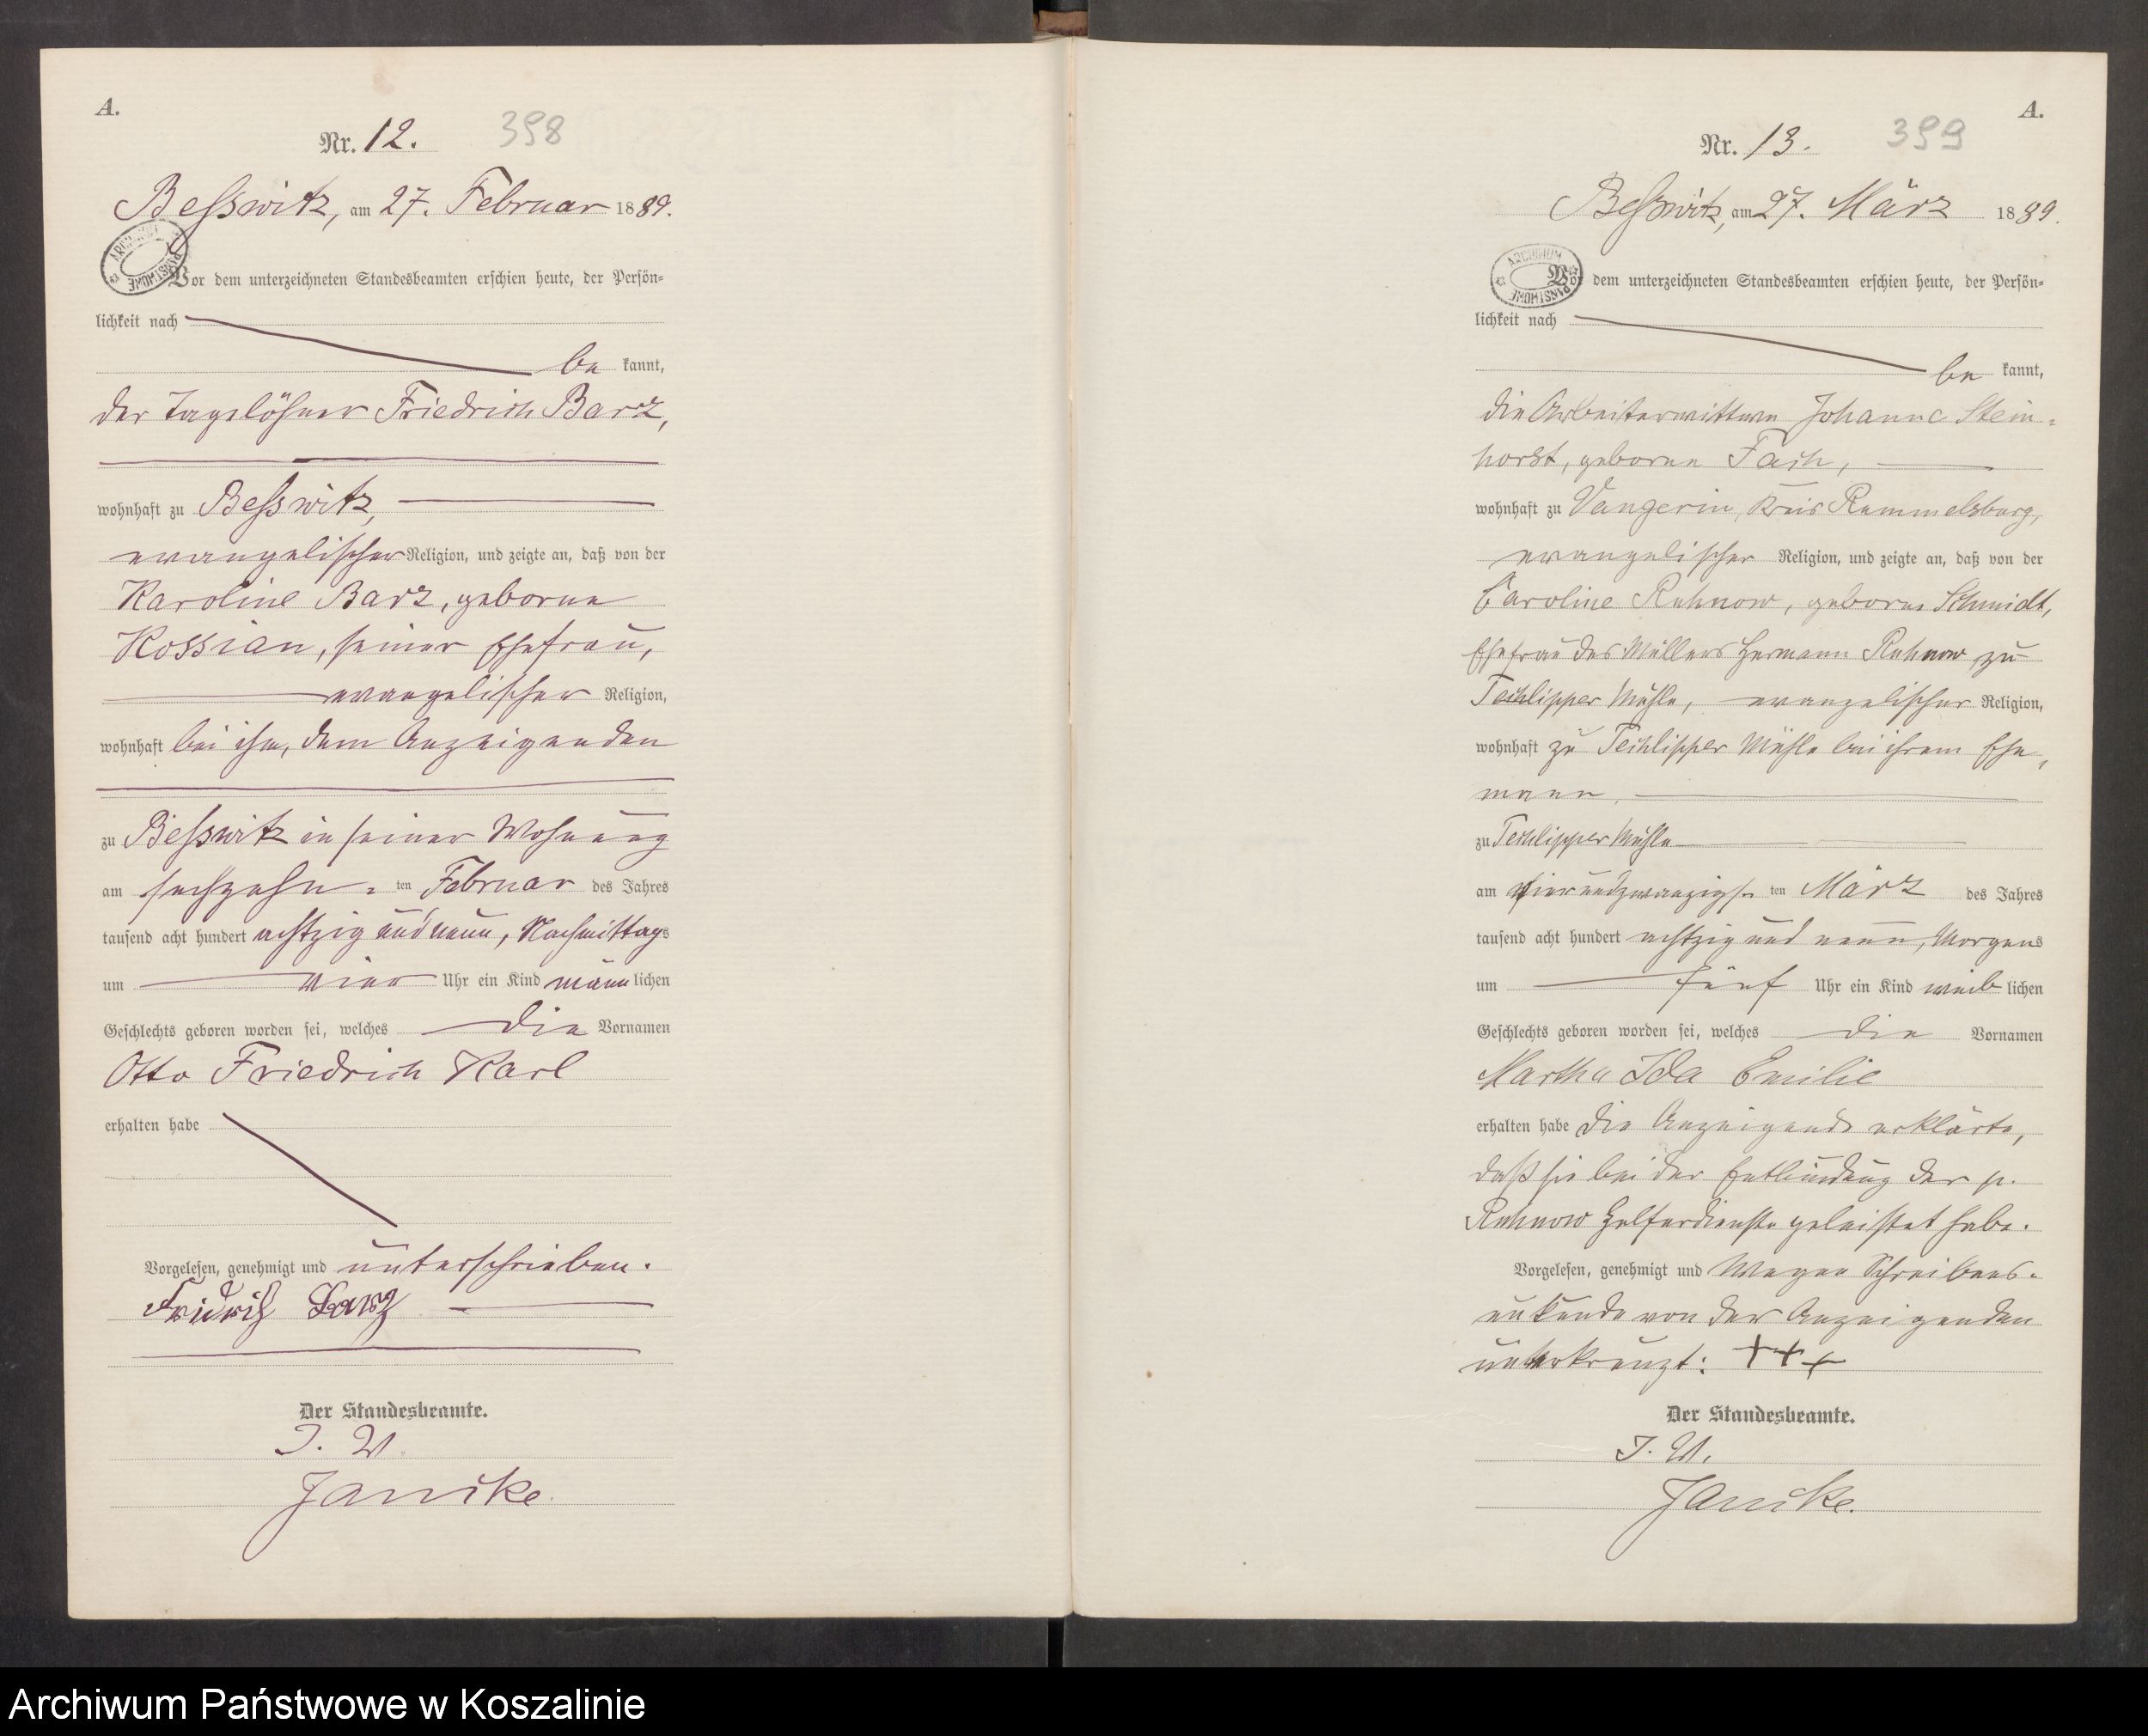 A.
Nr. 12. 398
Beßwitz, am 27. Februar 1889.
ARCHIWUM PAŃSTWOWE
Vor dem unterzeichneten Standesbeamten erschien heute, der Persön-
lichkeit nach
be kannt,
der Tagelöhner Friedrich Barz,
wohnhaft zu Beßwitz,
evangelischer Religion, und zeigte an, daß von der
Karoline Barz, geborne
Kossian, seiner Ehefrau,
evangelischer Religion,
wohnhaft bei ihm, dem Anzeigenden
zu Beßwitz in seiner Wohnung
am sechzehn-ten Februar des Jahres
tausend acht hundert achtzig und neun, Nachmittags
um vier Uhr ein Kind männlichen
Geschlechts geboren worden sei, welches die Vornamen
Otto Friedrich Karl
erhalten habe
Vorgelesen, genehmigt und unterschrieben.
Fridrich Barz
Der Standesbeamte.
J. V.
Janicke.
A.
Nr. 13. 399
Beßwitz, am 27. März 1889.
ARCHIWUM PAŃSTWOWE
Vor dem unterzeichneten Standesbeamten erschien heute, der Persön-
lichkeit nach
be kannt,
die Arbeiterwittwe Johanne Stein-
horst, geborne Fach,
wohnhaft zu Vangerin, Kreis Rummelsburg,
evangelischer Religion, und zeigte an, daß von der
Caroline Ruhnow, geborne Schmidt,
Ehefrau des Müllers Hermann Ruhnow zu
Techlipper Mühle, evangelischer Religion,
wohnhaft zu Techlipper Mühle bei ihrem Ehe-
mann
zu Techlipper Mühle
am vierundzwanzigs-ten März des Jahres
tausend acht hundert achtzig und neun, Morgens
um fünf Uhr ein Kind weiblichen
Geschlechts geboren worden sei, welches die Vornamen
Martha Ida Emilie
erhalten habe die Anzeigende erklärte,
daß sie bei der Entbindung der p.
Ruhnow Helferdienste geleistet habe.
Vorgelesen, genehmigt und Wegen Schreibens-
unkunde von der Anzeigenden
unterkreuzt: +++
Der Standesbeamte.
J. V.
Janicke.
Archiwum Państwowe w Koszalinie